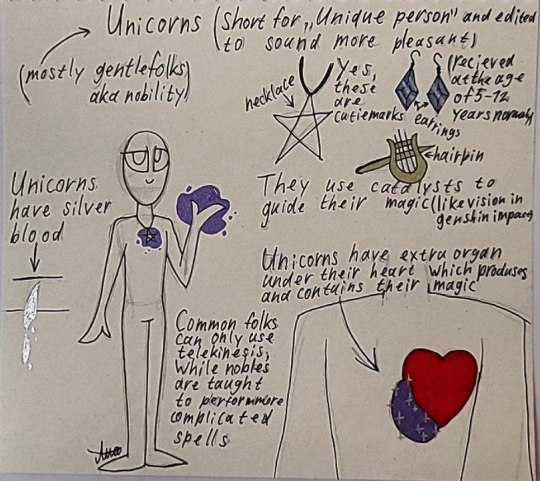 Unicorns (Short for „Unique person" and edited
to sound more pleasant)
(mostly gentlefolks
aka nobility)
necklace
Yes,
these
are
cutiemarks
(recieved
at the age
of 5-12
years normally)
earrings
hairpin
They use catalysts to
guide their magic (like vision in
genshin impact)
Unicorns
have silver
blood
Unicorns have extra organ
under their heart which produses
and contains their magic
Common folks
can only use
telekinesis,
while nobles
are taught
to perform more
complicated
spells